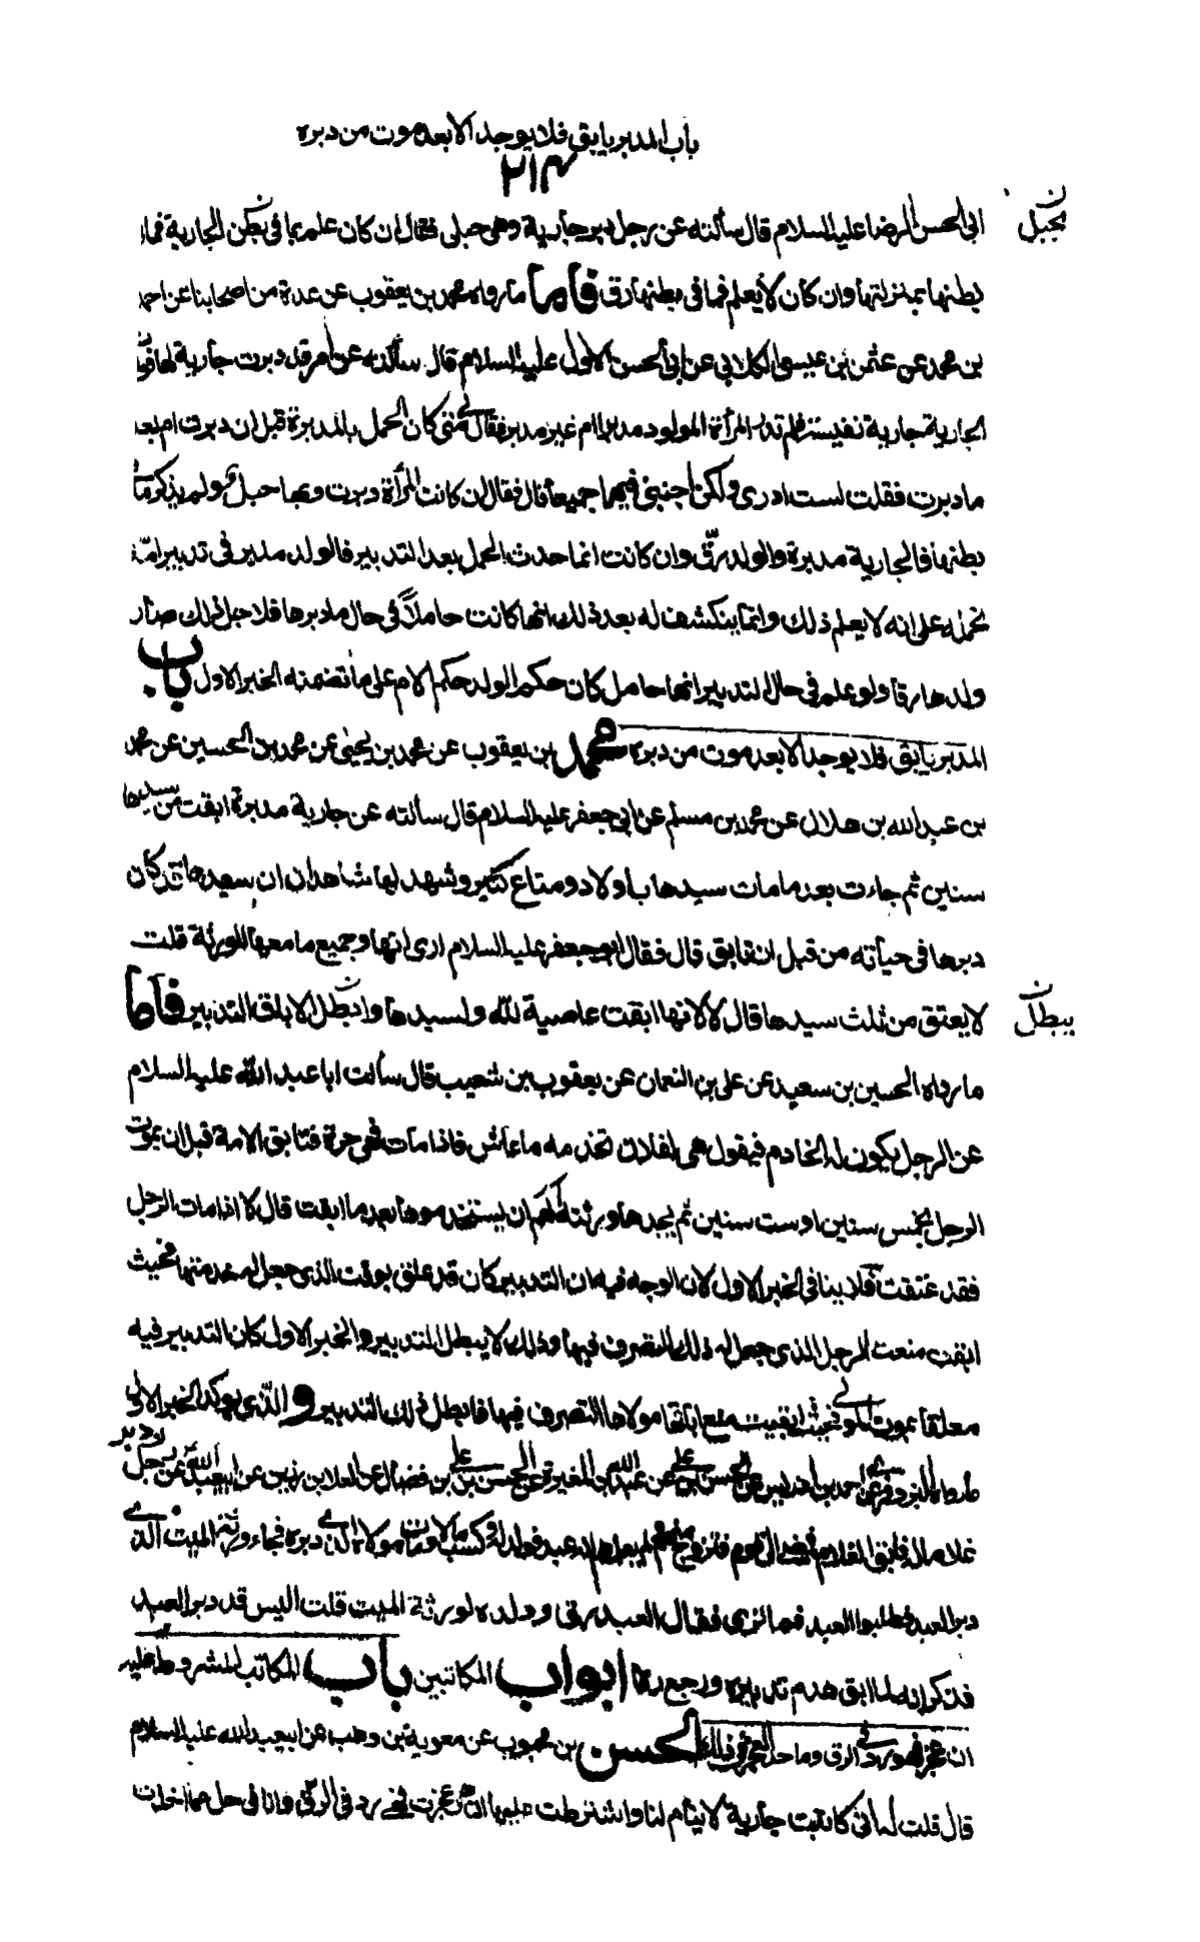 باب المدبر يابق فلا يوجد الا بعد موت من دبره
٢١٣
ابى الحسن الرضا عليه السلام قال سألته عن رجل دبر جارية وهى حبلى فقال ان كان علم بما فى بطن الجارية فما فى
بحبل
بطنها بمنزلتها وان كان لا يعلم فما فى بطنها رق فاما ما رواه محمد بن يعقوب عن عدة من اصحابنا عن احمد
بن محمد عن عثمن بن عيسى الكلابى عن ابى الحسن الاول عليه السلام قال سألته عن امرأة دبرت جارية لها فولدت
الجارية جارية نفيسة فلم تدر المرأة المولود مدبر ام غير مدبر فقال لى متى كان الحمل بالمدبرة قبل ان دبرت ام بعد
ما دبرت فقلت لست ادرى ولكن اجبنى فيهما جميعا قال فقال ان كانت المرأة دبرت وبها حبل ولم يذكر ما فى
بطنها فالجارية مدبرة والولد رق وان كانت انما حدث الحمل بعد التدبير فالولد مدبر فى تدبير امه
نحمله على انه لا يعلم ذلك وانما ينكشف له بعد ذلك انها كانت حاملاً فى حال ما دبرها فلاجل ذلك صار
ولدها رقا ولو علم فى حال التدبير انها حامل كان حكم الولد حكم الام على ما تضمنه الخبر الاول باب
المدبر يابق فلا يوجد الا بعد موت من دبره محمد بن يعقوب عن محمد بن يحيى عن محمد بن الحسين عن محمد
بن عبد الله بن هلال عن محمد بن مسلم عن ابى جعفر عليه السلام قال سألته عن جارية مدبرة ابقت من سيدها
سنين ثم جاءت بعد ما مات سيدها باولاد ومتاع كثير وشهد لها شاهدان ان سيدها قد كان
دبرها فى حياته من قبل ان تابق قال فقال ابو جعفر عليه السلام ارى انها وجميع ما معها للورثة قلت
لا يعتق من ثلث سيدها قال لا لانها ابقت عاصية لله ولسيدها وابطل الاباق التدبير فاما
يبطل
ما رواه الحسين بن سعيد عن على بن النعمان عن يعقوب بن شعيب قال سألت ابا عبد الله عليه السلام
عن الرجل يكون له الخادم فيقول هى لفلان تخدمه ما عاش فاذا مات فهى حرة فتابق الامة قبل ان يموت
الرجل بخمس سنين او ست سنين ثم يجدها ورثته ألهم ان يستخدموها بعد ما ابقت قال لا اذا مات الرجل
فقد عتقت فلا ينافى الخبر الاول لان الوجه فيه ان التدبير كان قد علق بموت الذى جعل له خدمتها فحيث
ابقت منعت الرجل الذى جعل له ذلك التصرف فيها وذلك لا يبطل التدبير والخبر الاول كان التدبير فيه
معلقا بموت المولى فحيث ابقت منع اباقها مولاها التصرف فيها فابطل ذلك التدبير والذى يؤكد الخبر الاول
ما رواه البزوفرى عن احمد بن ادريس عن الحسن بن على عن عبد الله بن المغيرة عن الحسن بن على بن فضال عن العلا بن رزين عن ابى عبد الله عن رجل دبر
غلاما له فابق الغلام فمضى الى قوم فتزوج منهم ولم يعلمهم انه عبد فولد له وكسب مالا ومات مولاه الذى دبره فجاء ورثة الميت الذى
دبر العبد فطلبوا العبد فما ترى فقال العبد رق وولده لورثة الميت قلت اليس قد دبر العبد
فذكر انه لما ابق هدم تدبيره ورجع رقا ابواب المكاتبين باب المكاتب المشروط عليه
ان عجز فهو رد فى الرق وما حد العجز فى ذلك الحسن بن محبوب عن معوية بن وهب عن ابى عبد الله عليه السلام
قال قلت له انى كاتبت جارية لايتام لنا واشترطت عليها ان هى عجزت فهى رد فى الرق وانا فى حل مما اخذت